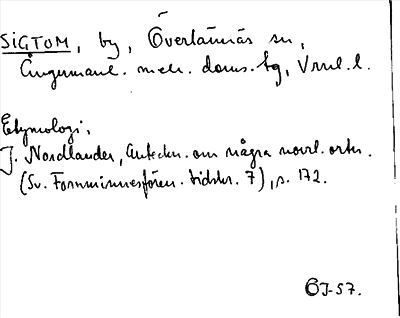 SIGTOM, by, Överlännäs sn,
Ångermanl. mell. doms. tg, Vrnl. l.
Etymologi.
J. Nordlander, Anteckn. om några norrl. ortn.
(Sv. Fornminnesfören. tidskr. 7), s. 172.
GJ-57.